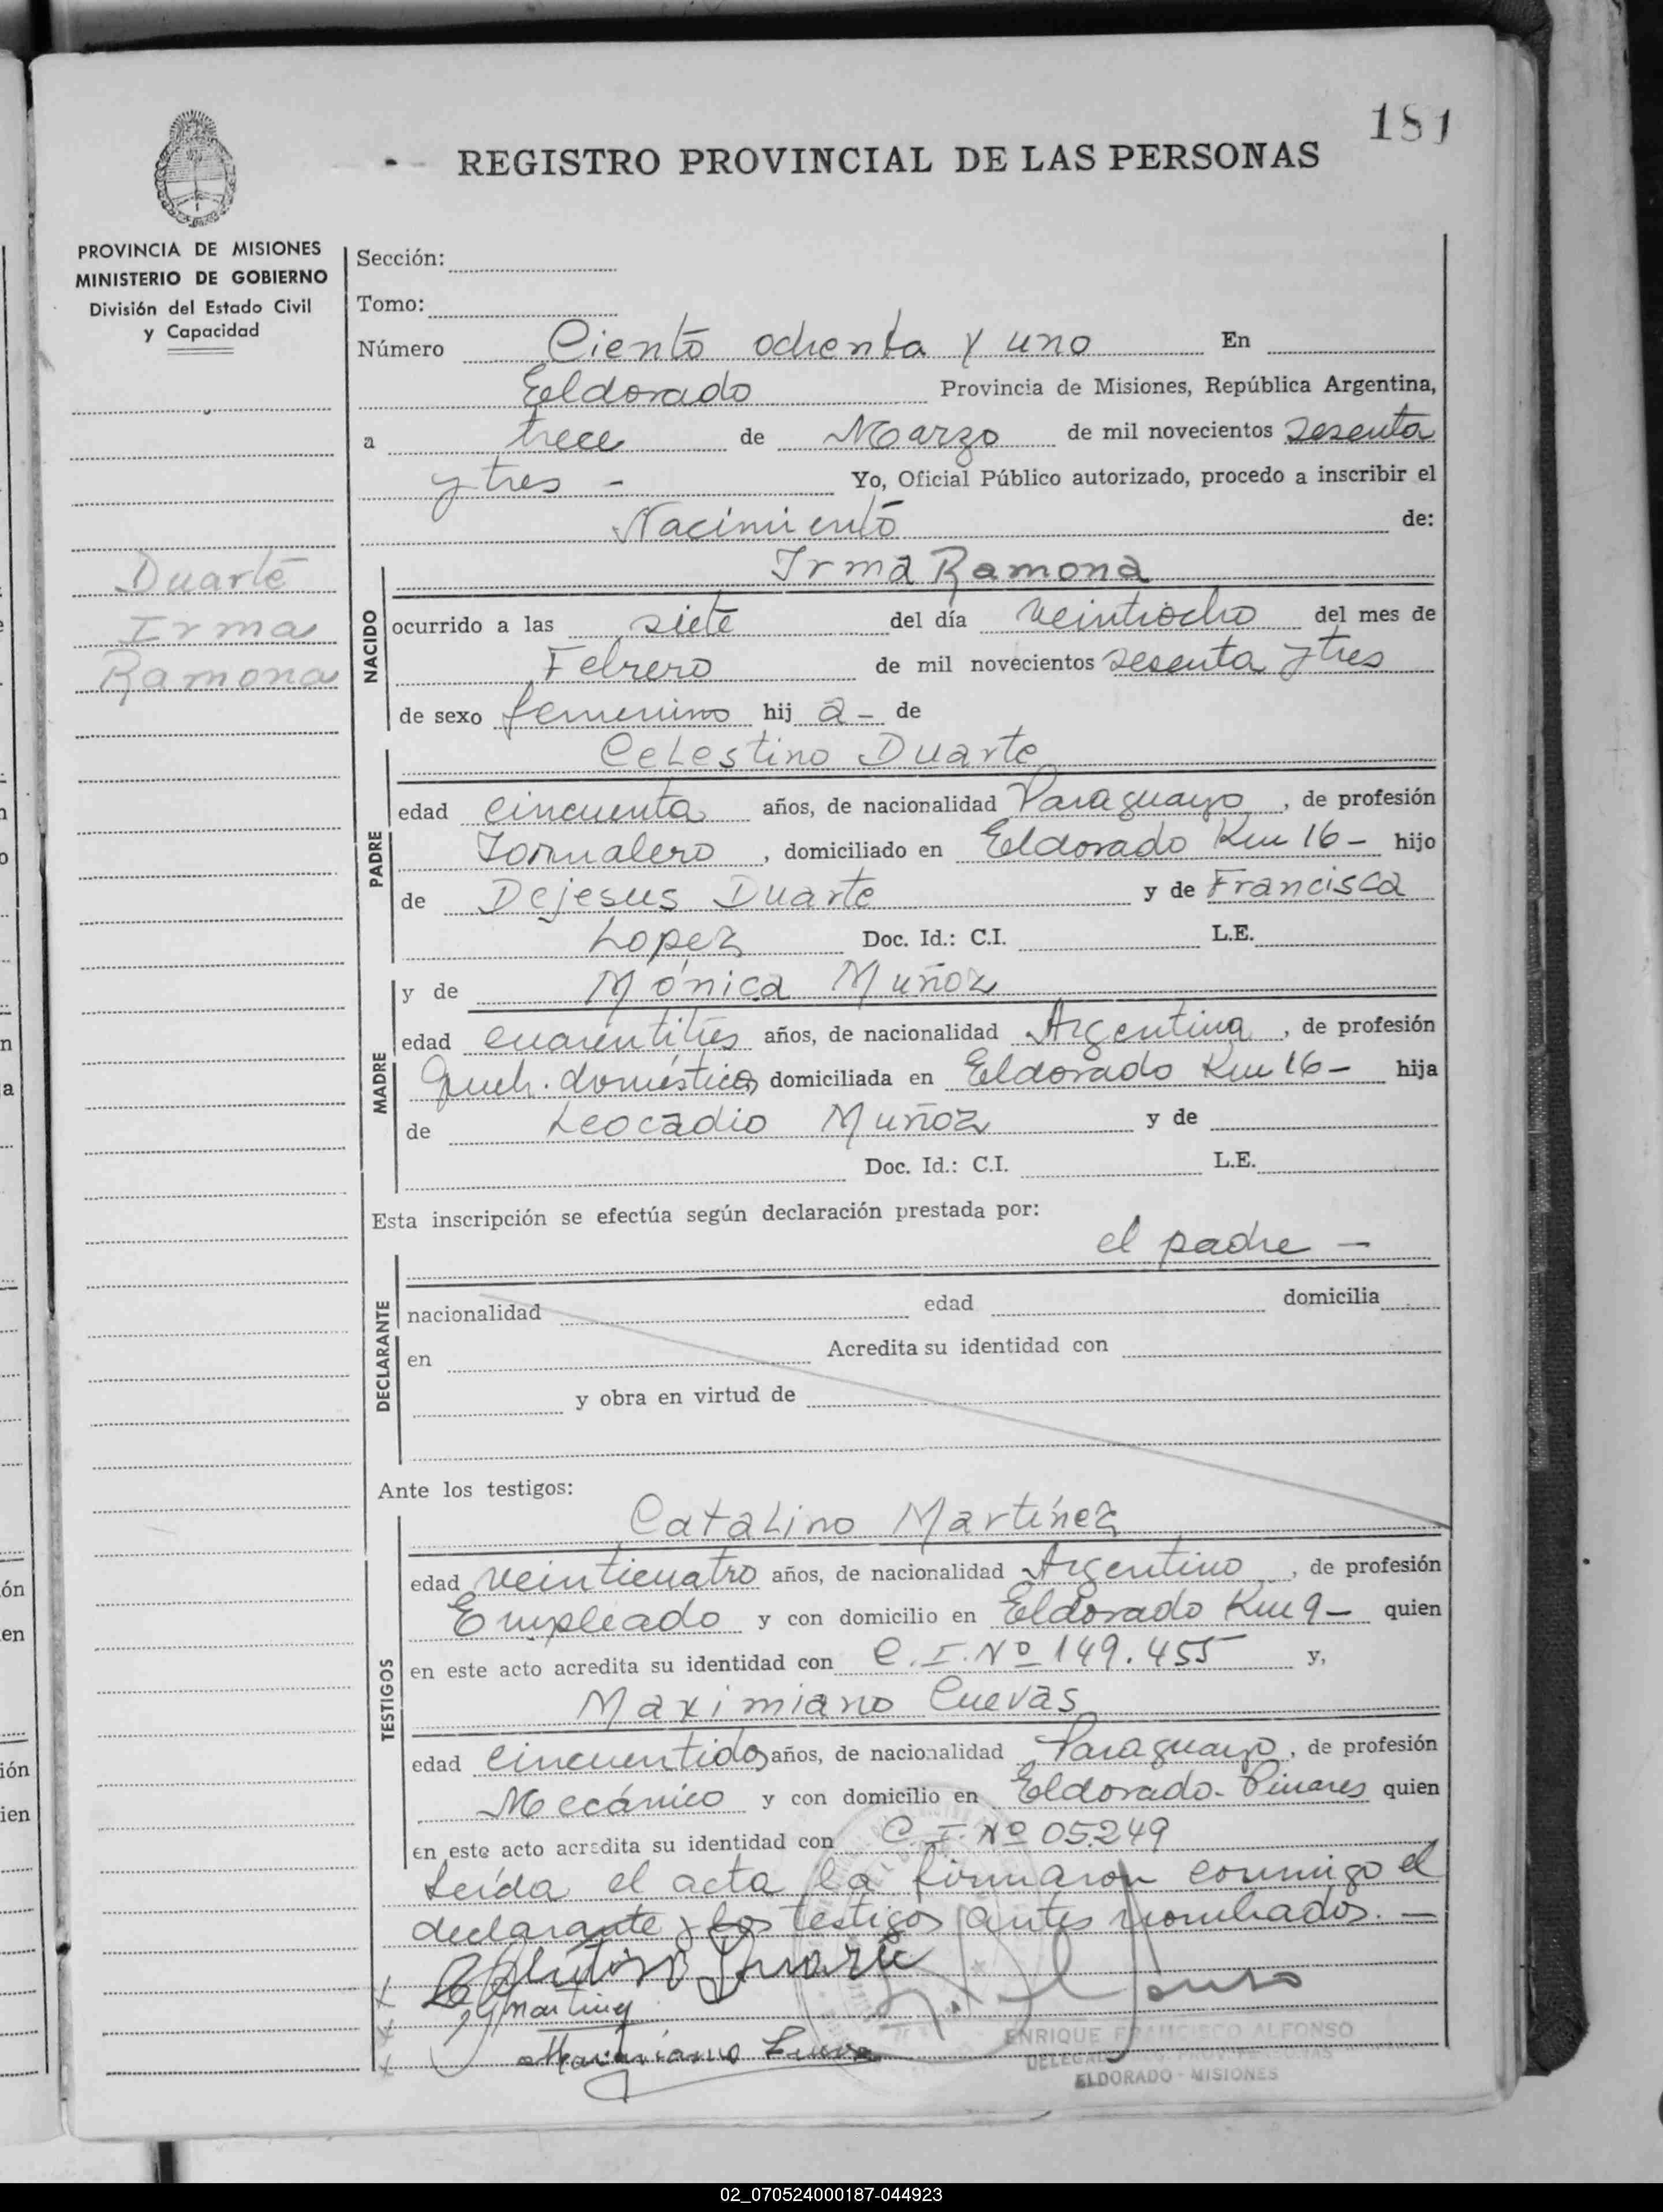 181
REGISTRO PROVINCIAL DE LAS PERSONAS
PROVINCIA DE MISIONES
MINISTERIO DE GOBIERNO
División del Estado Civil
y Capacidad
Duarte
Irma
Ramona
Sección:
Tomo:
Número Ciento ochenta y uno En
Eldorado Provincia de Misiones, República Argentina,
a trece de Marzo de mil novecientos sesenta
y tres - Yo, Oficial Público autorizado, procedo a inscribir el
Nacimiento de:
NACIDO
Irma Ramona
ocurrido a las siete del día veintiocho del mes de
Febrero de mil novecientos sesenta y tres
de sexo femenino hij a - de
PADRE
Celestino Duarte
edad cincuenta años, de nacionalidad Paraguayo, de profesión
Jornalero, domiciliado en Eldorado Km 16 - hijo
de Dejesus Duarte y de Francisca
Lopez Doc. Id.: C.I. L.E.
MADRE
y de Mónica Muñoz
edad cuarentitres años, de nacionalidad Argentina, de profesión
Queh. domésticos domiciliada en Eldorado Km 16 - hija
de Leocadio Muñoz y de
Doc. Id.: C.I. L.E.
Esta inscripción se efectúa según declaración prestada por:
el padre -
DECLARANTE
nacionalidad edad domicilia
en Acredita su identidad con
y obra en virtud de
Ante los testigos:
TESTIGOS
Catalino Martínez
edad veinticuatro años, de nacionalidad Argentino, de profesión
Empleado y con domicilio en Eldorado Km 9 - quien
en este acto acredita su identidad con C.I. Nº 149.455 y,
Maximiano Cuevas
edad cincuentidos años, de nacionalidad Paraguayo, de profesión
Mecánico y con domicilio en Eldorado - Pinares quien
en este acto acredita su identidad con C.I. Nº 05.249
Leída el acta la firmaron conmigo el
declarante y los testigos antes nombrados. -
x Celestino Duarte
x Martinez
x Maximiano Cuevas
ENRIQUE FRANCISCO ALFONSO
ELDORADO - MISIONES
02_070524000187-044923